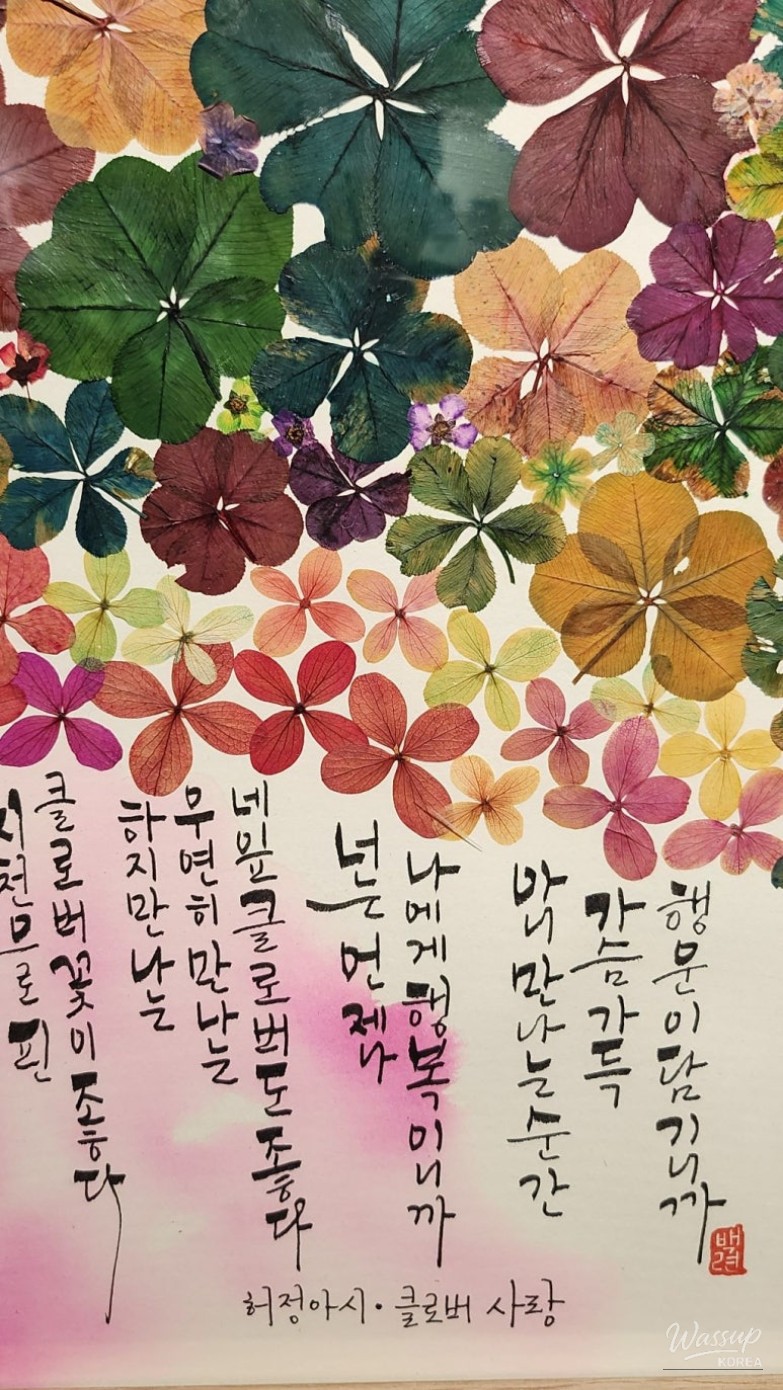 지천으로 핀
클로버꽃이 좋다
하지만 나는
우연히 만나는
네잎클로버도 좋다
넌 언제나
나에게 행복이니까
만나는 순간
가슴 가득
행운이 담기니까
백련
허정아시·클로버 사랑
Wassup
KOREA